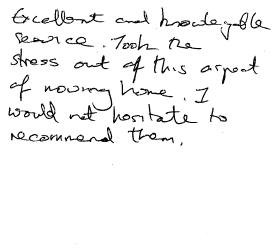 Excellent and knowledgable
service. Took the
stress out of this aspect
of moving home. I
would not hesitate to
recommend them.